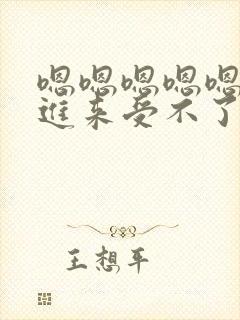 嗯嗯嗯嗯嗯
进来受不了
王想平